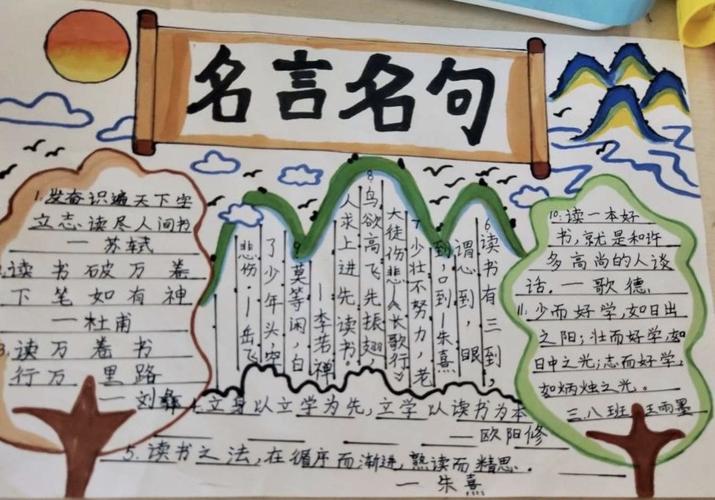 名言名句
1.发奋识遍天下字
立志、读尽人间书
—苏轼
2.读书破万卷
下笔如有神
—杜甫
3.读万卷书
行万里路
—刘
立身以立学为先,立学以读书为本
—欧阳修
5.读书之法,在循序而渐进,熟读而精思。
—朱熹
6.读书有三到,
谓心到,眼
到,口到—朱熹
7.少壮不努力,老
大徒伤悲《长歌行》
8.鸟欲高飞先振翅
人求上进先读书
—李若禅
9.莫等闲,白
了少年头,空
悲伤.—岳飞
10.读一本好
书,就是和许
多高尚的人谈
话。—歌德
11.少而好学,如日出
之阳;壮而好学,如
日中之光;志而好学,
如炳烛之光。
三、八班 王雨墨